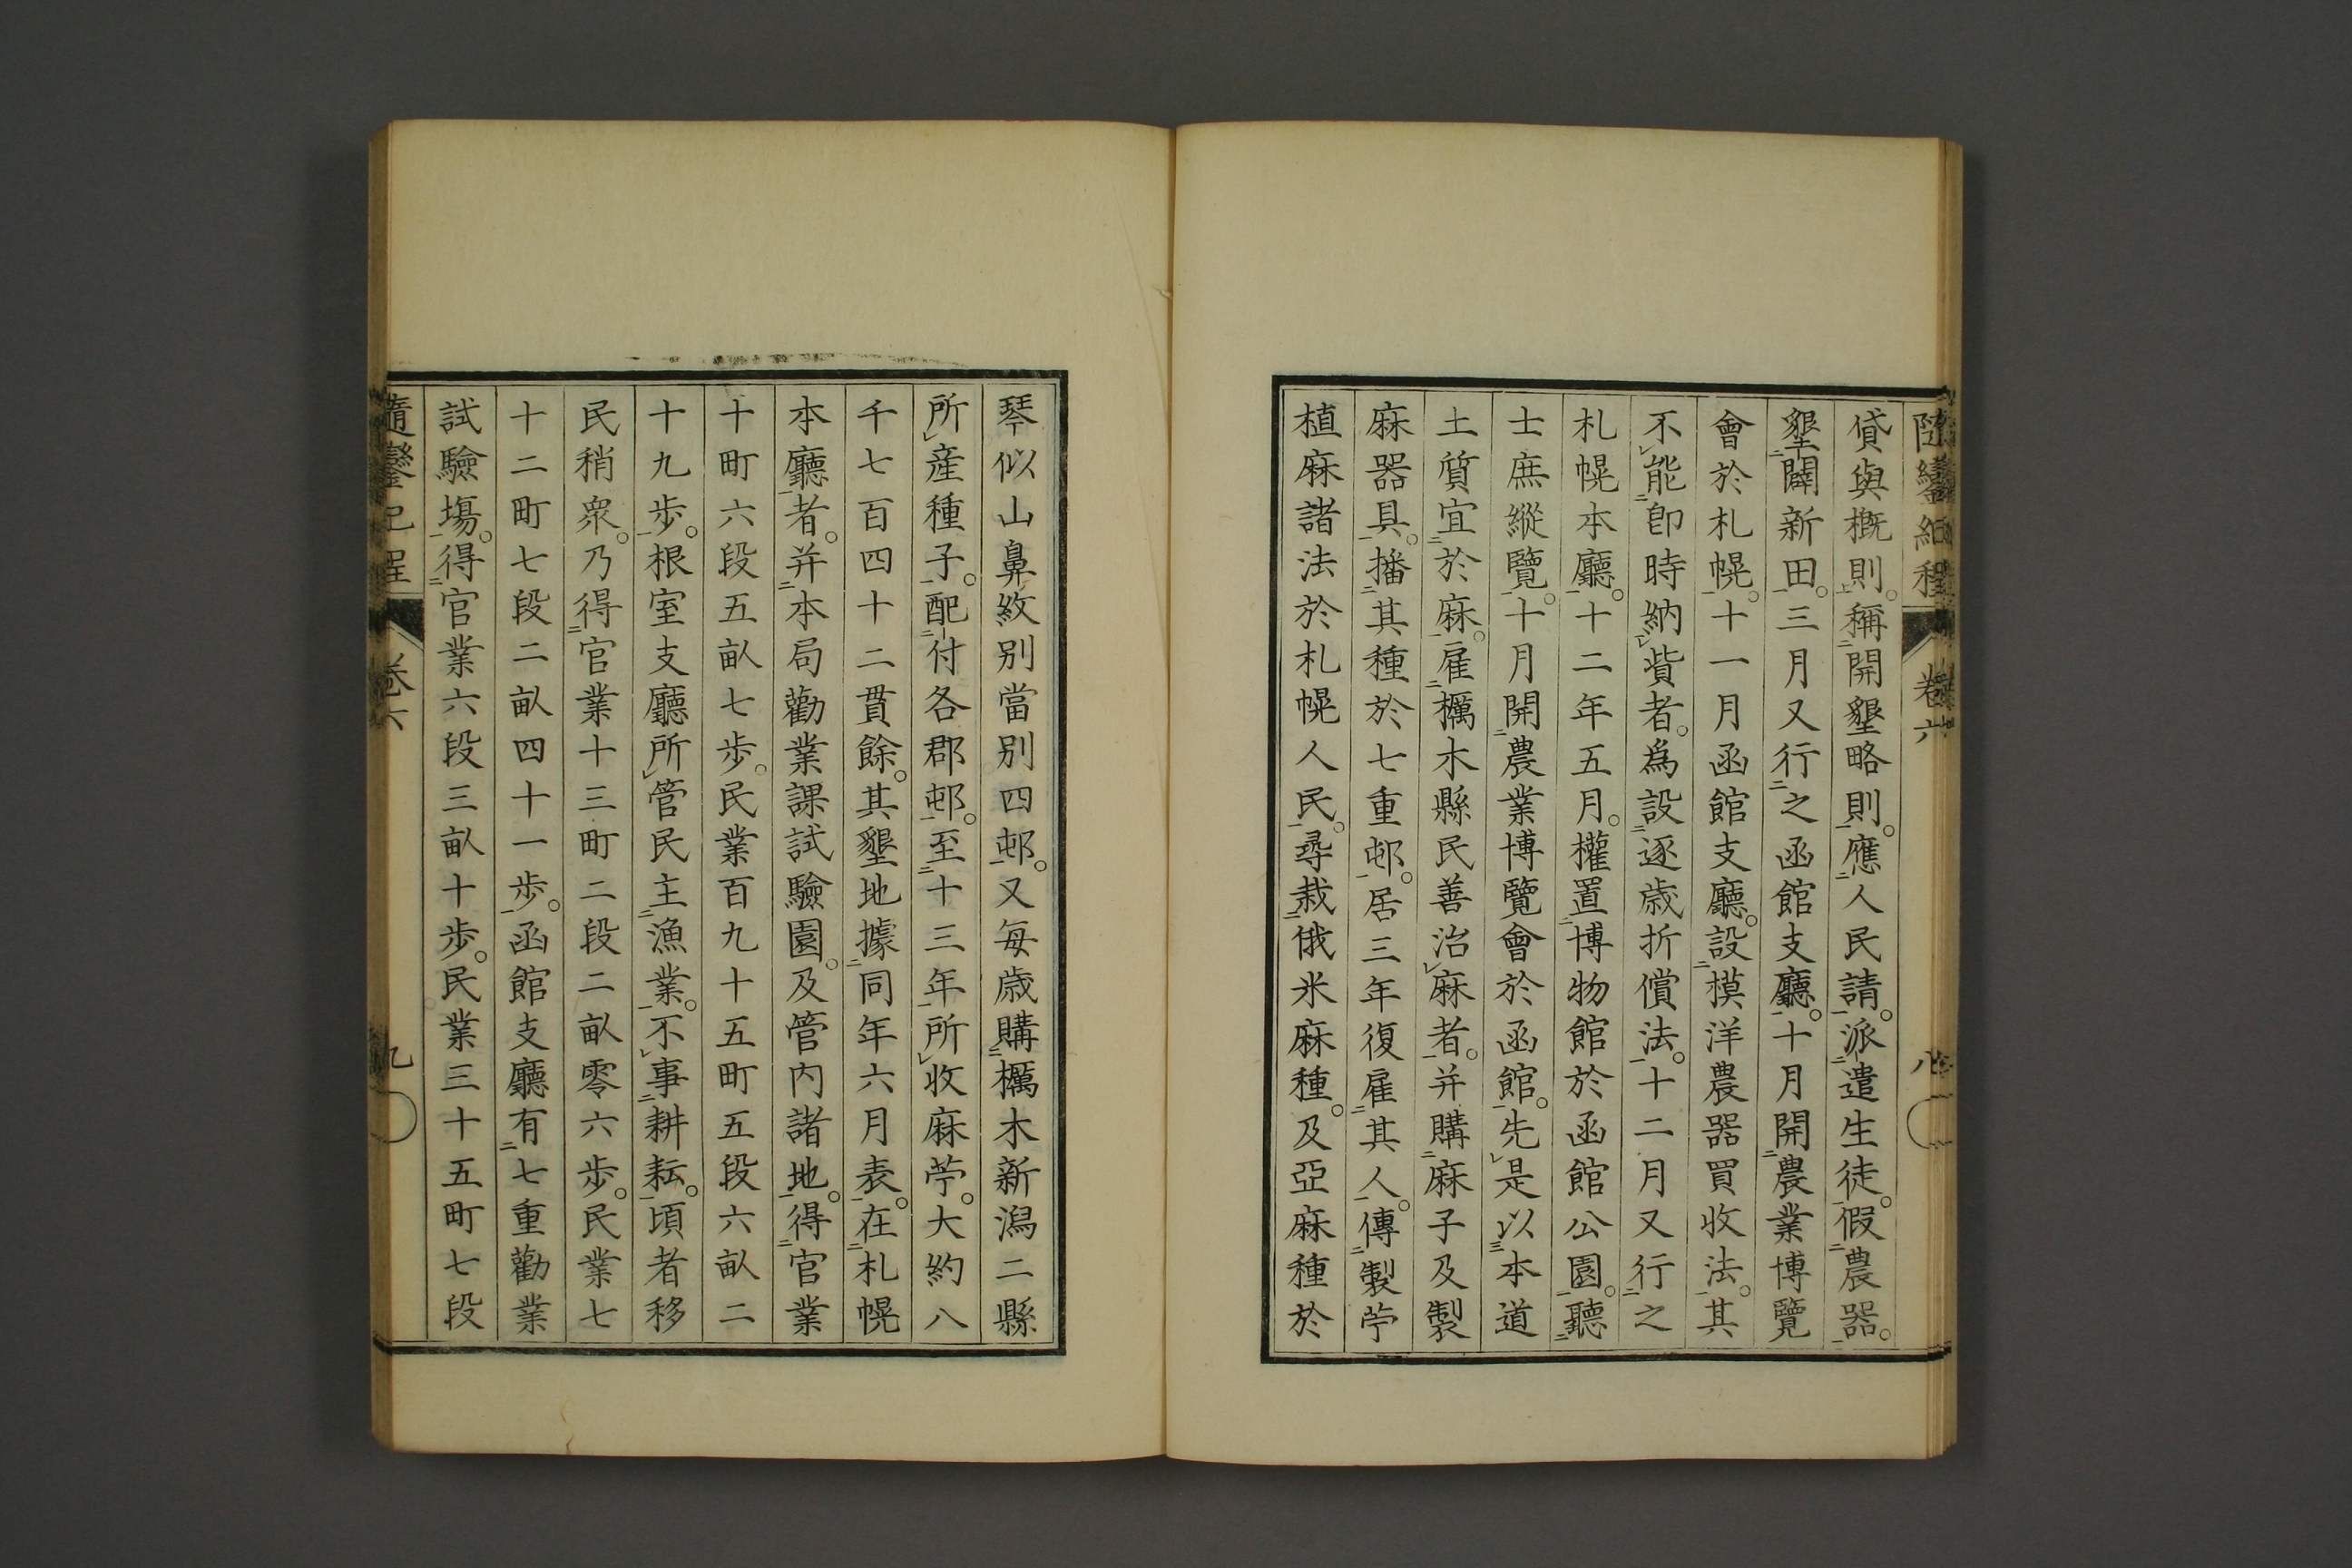 隨鑾紀程 卷六 八
貸與概則。稱開墾略則。應人民請。派遣生徒。假農器。
墾闢新田。三月又行之函館支廳。十月開農業博覽
會於札幌。十一月函館支廳。設模洋農器買收法。其
不能卽時納貲者。爲設逐歲折償法。十二月又行之
札幌本廳。十二年五月。權置博物館於函館公園。聽
士庶縱覽。十月開農業博覽會於函館。先是以本道
土質宜於麻。雇櫔木縣民善治麻者。并購麻子及製
麻器具。播其種於七重邨。居三年復雇其人。傳製苧
植麻諸法於札幌人民。尋栽俄米麻種。及亞麻種於
琴似山鼻紋别當别四邨。又每歲購櫔木新潟二縣
所產種子。配付各郡邨。至十三年所收麻苧。大約八
千七百四十二貫餘。其墾地據同年六月表。在札幌
本廳者。并本局勸業課試驗園。及管内諸地。得官業
十町六段五畝七步。民業百九十五町五段六畝二
十九步。根室支廳所管民主漁業。不事耕耘。頃者移
民稍衆。乃得官業十三町二段二畝零六步。民業七
十二町七段二畝四十一步。函館支廳有七重勸業
試驗場。得官業六段三畝十步。民業三十五町七段
隨鑾紀程 卷六 九